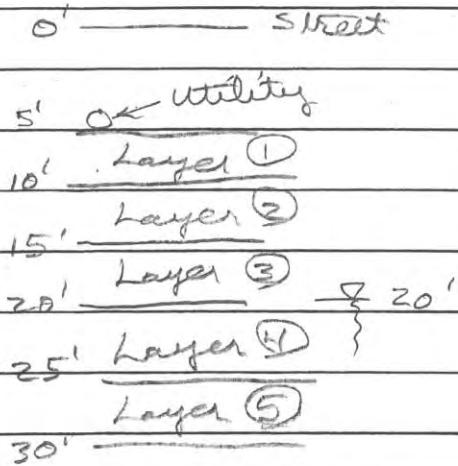 0' Street
5' Utility
Layer ①
10'
Layer ②
15'
Layer ③
20' 20'
Layer ④
25'
Layer ⑤
30'